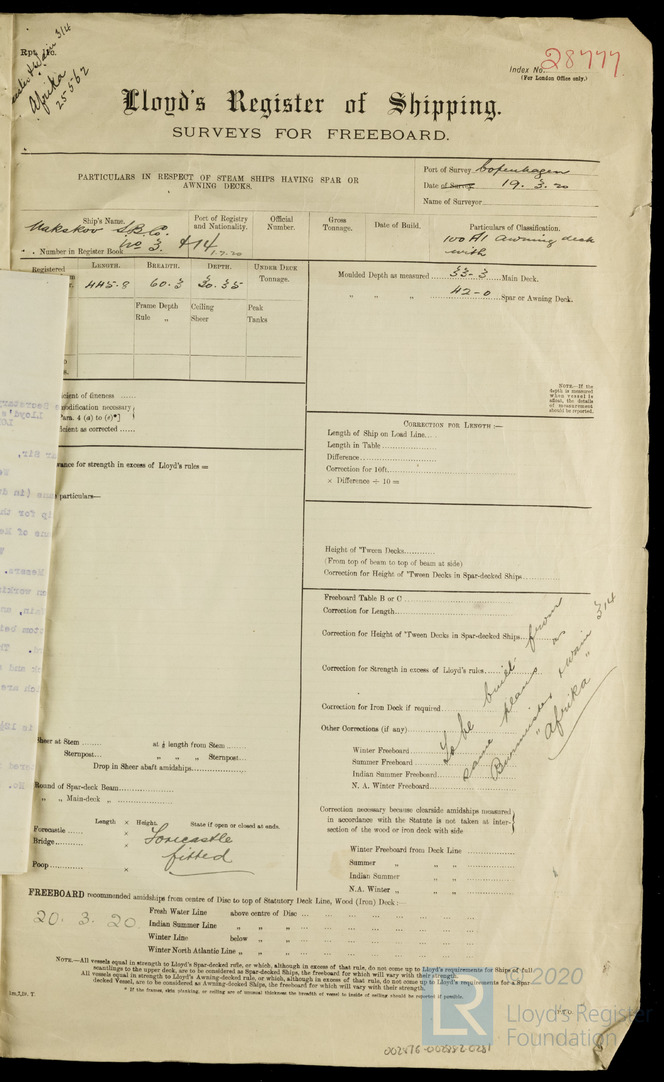 Rpt. No.
Burmeister & Wain 314
Afrika
25562
Index No. 28777.
(For London Office only.)
Lloyd's Register of Shipping.
SURVEYS FOR FREEBOARD.
PARTICULARS IN RESPECT OF STEAM SHIPS HAVING SPAR OR
AWNING DECKS.
Port of Survey Copenhagen
Date of Survey 19. 3. 20
Name of Surveyor
Ship's Name.
Port of Registry
and Nationality.
Official
Number.
Gross
Tonnage.
Date of Build.
Particulars of Classification.
Nakskov S.B. Co.
No 3.
100 A1 Awning deck
with
Number in Register Book
Registered
LENGTH.
BREADTH.
DEPTH.
UNDER DECK
Tonnage.
445.8
60.3
30.35
Frame Depth
Rule „
Ceiling
Sheer
Peak
Tanks
Moulded Depth as measured 33-3 Main Deck.
„ „ „ 42-0 Spar or Awning Deck.
NOTE.—If the
depth is measured
when vessel is
afloat, the details
of measurement
should be reported.
icient of fineness
modification necessary
Para. 4 (a) to (e)*]
ficient as corrected
CORRECTION FOR LENGTH:—
Length of Ship on Load Line
Length in Table
Difference
Correction for 10ft.
× Difference ÷ 10 =
ance for strength in excess of Lloyd's rules =
particulars—
Height of 'Tween Decks
(From top of beam to top of beam at side)
Correction for Height of 'Tween Decks in Spar-decked Ships
Freeboard Table B or C
Correction for Length
Correction for Height of 'Tween Decks in Spar-decked Ships
Correction for Strength in excess of Lloyd's rules
Correction for Iron Deck if required
Other Corrections (if any)
Winter Freeboard
Summer Freeboard
Indian Summer Freeboard
N. A. Winter Freeboard
To be built from
same plans as
Burmeister & Wain 314
"Afrika"
Sheer at Stem at ⅛ length from Stem
Sternpost „ „ „ Sternpost
Drop in Sheer abaft amidships
Round of Spar-deck Beam
„ „ Main-deck „
Correction necessary because clearside amidships measured
in accordance with the Statute is not taken at inter-
section of the wood or iron deck with side
Length × Height. State if open or closed at ends.
Forecastle ×
Bridge ×
Poop ×
Forecastle
fitted
Winter Freeboard from Deck Line
Summer „ „ „
Indian Summer „ „
N.A. Winter „ „ „
FREEBOARD recommended amidships from centre of Disc to top of Statutory Deck Line, Wood (Iron) Deck:—
20. 3. 20
Fresh Water Line above centre of Disc
Indian Summer Line „ „ „
Winter Line below „ „
Winter North Atlantic Line „ „ „
NOTE.—All vessels equal in strength to Lloyd's Spar-decked rule, or which, although in excess of that rule, do not come up to Lloyd's requirements for Ships of full
scantlings to the upper deck, are to be considered as Spar-decked Ships, the freeboard for which will vary with their strength.
All vessels equal in strength to Lloyd's Awning-decked rule, or which, although in excess of that rule, do not come up to Lloyd's requirements for a Spar-
decked Vessel, are to be considered as Awning-decked Ships, the freeboard for which will vary with their strength.
* If the frames, skin planking, or ceiling are of unusual thickness the breadth of vessel to inside of ceiling should be reported if possible.
© 2020
LR
Lloyd's Register
Foundation
002876-002882-0281